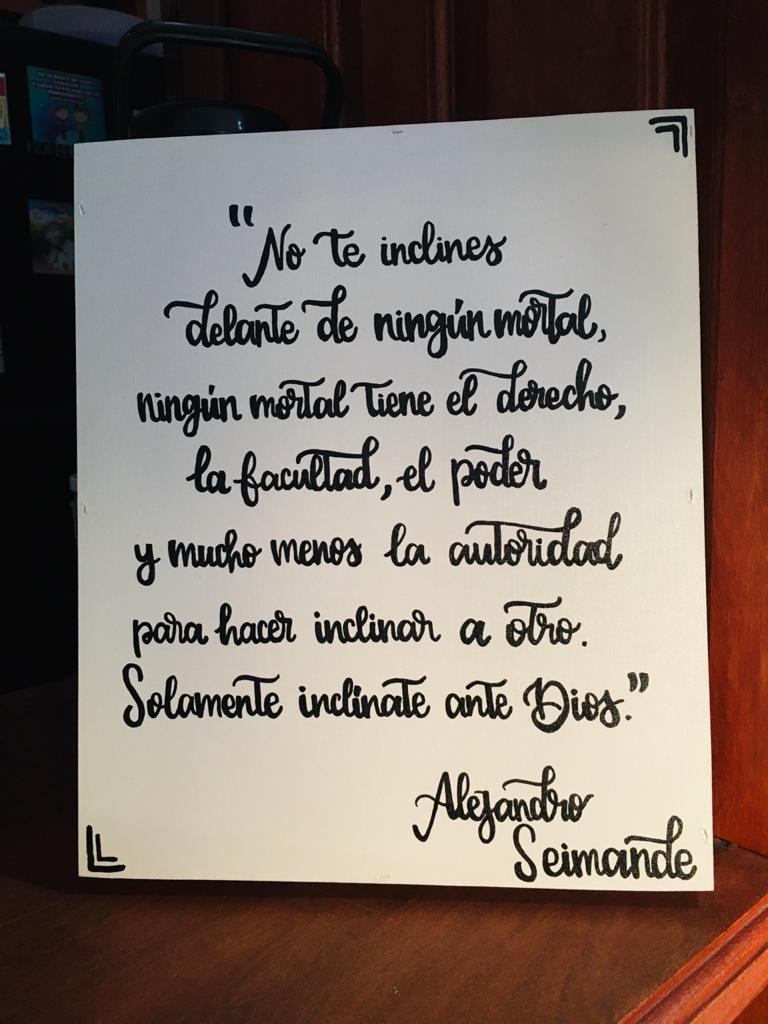 "No te inclines
delante de ningún mortal,
ningún mortal tiene el derecho,
la facultad, el poder
y mucho menos la autoridad
para hacer inclinar a otro.
Solamente inclínate ante Dios."
Alejandro
Seimande